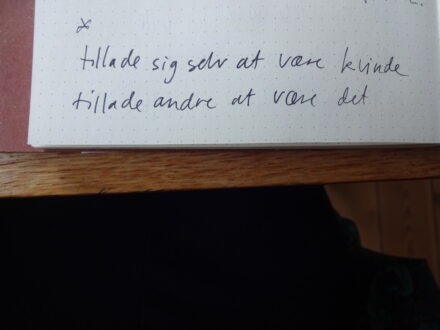 *
tillade sig selv at være kvinde
tillade andre at være det